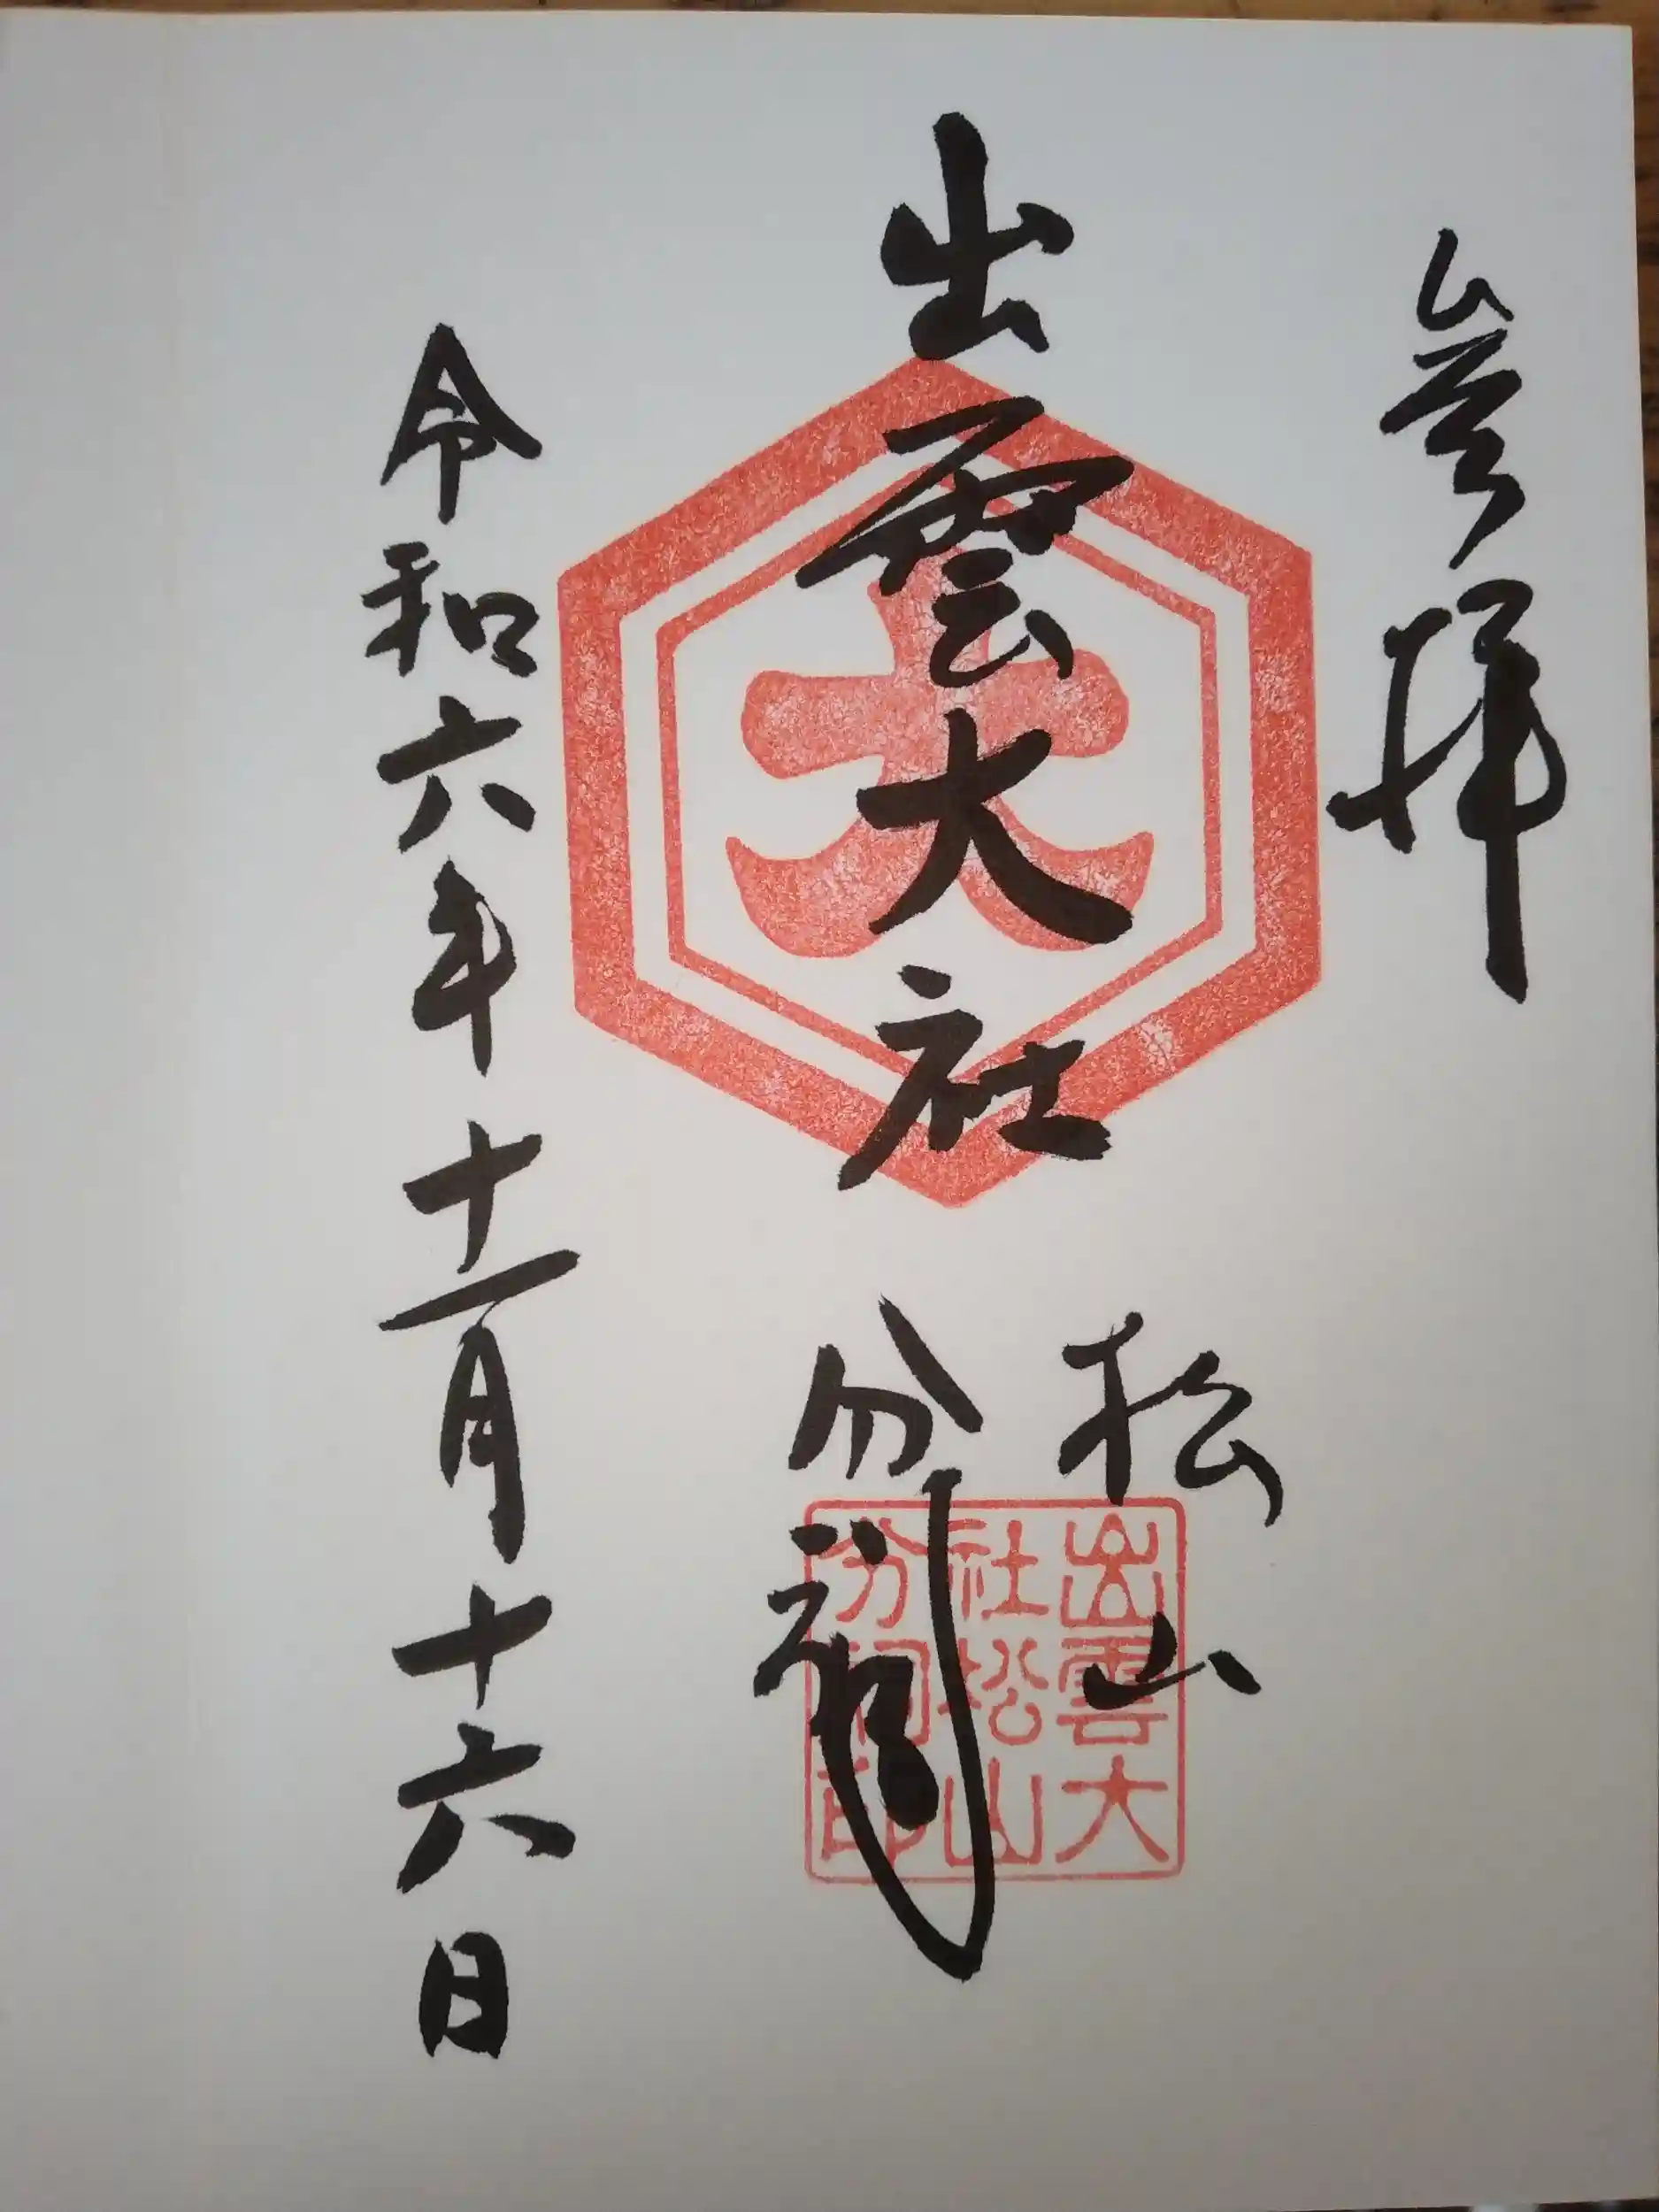 参拝
出雲大社
松山
分祠
令和六年十一月十六日
大
出雲大
社松山
分祠印